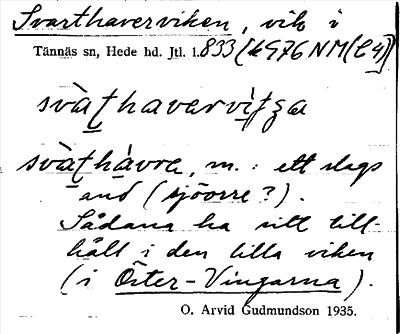 Svarthaverviken, vik i
Tännäs sn, Hede hd. Jtl. l. 833 (k976NM(C4)
svàṭhavervìṭʒa
svàṭhàvre, m.: ett slags
and (sjöorre?).
Sådana ha sitt till-
håll i den lilla viken
(i Öster-Vingarna).
O. Arvid Gudmundson 1935.